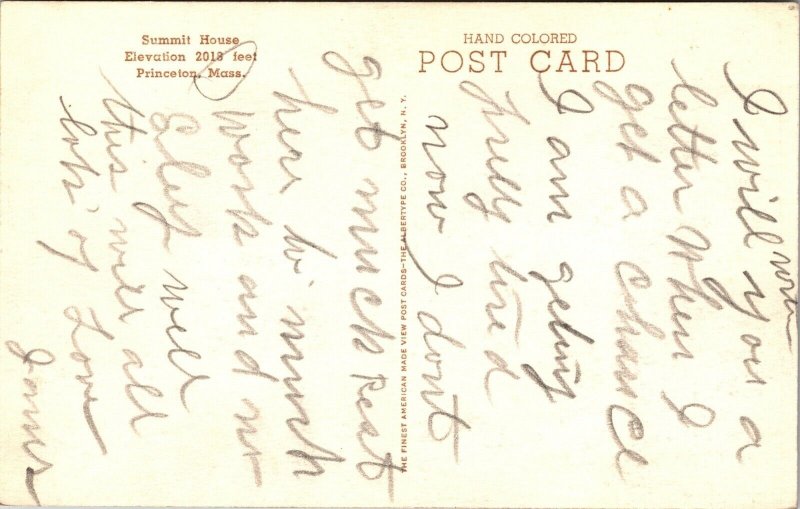 Summit House
Elevation 2018 feet
Princeton, Mass.
HAND COLORED
POST CARD
THE FINEST AMERICAN MADE VIEW POST CARDS—THE ALBERTYPE CO., BROOKLYN, N. Y.
I will write you a
letter When I
get a Chance
I am geting
pretty tired
now I dont
get much Rest
here to much
work and no
Sleep well
this will all
lots of Love